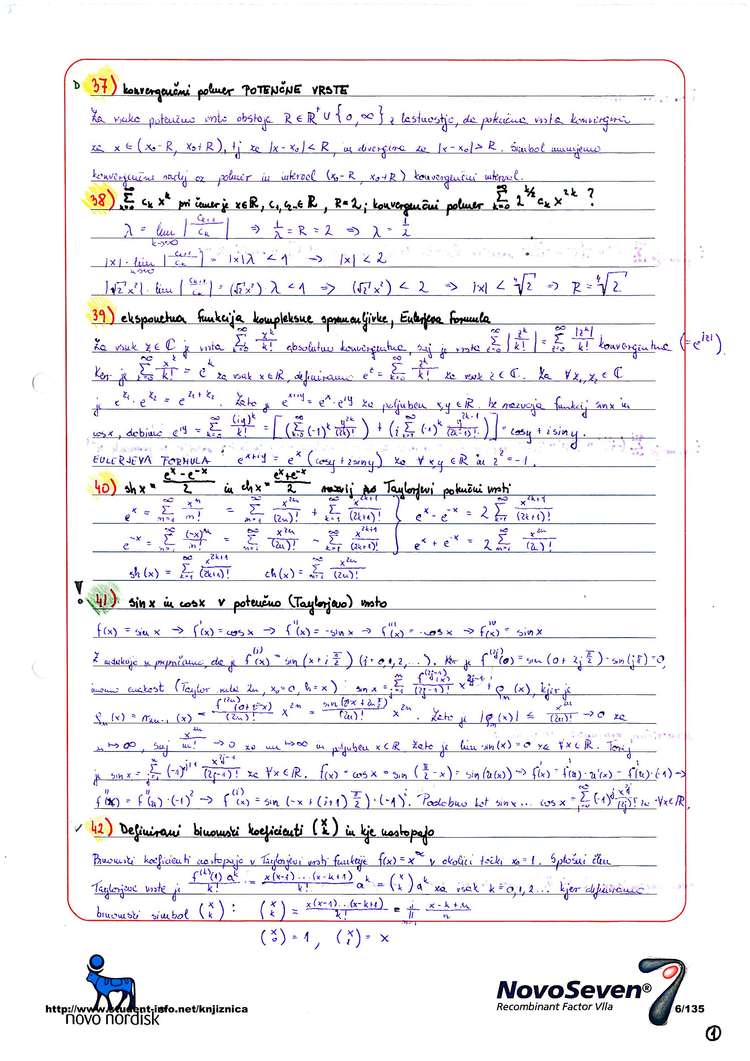 D 37) konvergenčni polmer POTENČNE VRSTE
Za vsako potenčno vrsto obstaja R ∈ ℝ⁺ ∪ {0, ∞} z lastnostjo, da potenčna vrsta konvergira
za x ∈ (x₀-R, x₀+R), tj za |x-x₀| < R, in divergira za |x-x₀| > R. Simbol imenujemo
konvergenčni radij oz polmer in interval (x₀-R, x₀+R) konvergenčni interval.
38) ∑_{k=0}^∞ c_k x^k pri čemer je x∈ℝ, R=2; konvergenčni polmer ∑_{k=0}^∞ 2^{k/2} c_k x^{2k} ?
λ = lim_{k→∞} |c_{k+1}/c_k| ⇒ 1/λ = R = 2 ⇒ λ = 1/2
|x|·lim |c_{k+1}/c_k| = |x|λ < 1 ⇒ |x| < 2
|√2 x²|·lim |c_{k+1}/c_k| = (√2 x²) λ < 1 ⇒ (√2 x²) < 2 ⇒ |x| < ⁴√2 ⇒ R = ⁴√2
39) eksponetna funkcija kompleksne spremenljivke, Eulerjeva formula
Za vsak z∈ℂ je vrsta ∑_{k=0}^∞ z^k/k! absolutno konvergentna, saj je vrsta ∑_{k=0}^∞ |z^k/k!| = ∑_{k=0}^∞ |z|^k/k! konvergentna (= e^{|z|}).
Ker je ∑_{k=0}^∞ x^k/k! = e^x za vsak x∈ℝ, definiramo e^z = ∑_{k=0}^∞ z^k/k! za vsak z∈ℂ. Za ∀z₁,z₂∈ℂ
je e^{z₁}·e^{z₂} = e^{z₁+z₂}. Zato je e^{x+iy} = e^x·e^{iy} za poljuben x,y∈ℝ. Iz razvoja funkcij sinx in
cosx, dobimo e^{iy} = ∑_{k=0}^∞ (iy)^k/k! = [(∑_{k=0}^∞ (-1)^k y^{2k}/(2k)!) + (i∑_{k=1}^∞ (-1)^k y^{2k-1}/(2k-1)!)] = cosy + i siny.
EULERJEVA FORMULA: e^{x+iy} = e^x (cosy + i siny) za ∀x,y∈ℝ in i² = -1.
40) sh x = (e^x - e^{-x})/2 in ch x = (e^x + e^{-x})/2 razvij po Taylorjevi potenčni vrsti
e^x = ∑_{n=1}^∞ x^n/n! = ∑_{n=1}^∞ x^{2n}/(2n)! + ∑_{k=1}^∞ x^{2k+1}/(2k+1)! } e^x - e^{-x} = 2∑_{k=1}^∞ x^{2k+1}/(2k+1)!
e^{-x} = ∑_{n=1}^∞ (-x)^n/n! = ∑_{n=1}^∞ x^{2n}/(2n)! - ∑_{k=1}^∞ x^{2k+1}/(2k+1)! } e^x + e^{-x} = 2∑_{n=1}^∞ x^{2n}/(2n)!
sh(x) = ∑_{k=1}^∞ x^{2k+1}/(2k+1)! ch(x) = ∑_{n=1}^∞ x^{2n}/(2n)!
! 41) sin x in cos x v potenčno (Taylorjevo) vrsto
f(x) = sin x → f'(x) = cos x → f''(x) = -sin x → f'''(x) = -cos x → f^{IV}(x) = sin x
Z indukcijo se prepričamo, da je f^{(i)}(x) = sin(x + i π/2) (i=0,1,2,...). Ker je f^{(2j)}(0) = sin(0 + 2j π/2) = sin(jπ) = 0,
imamo enakost (Taylor reda 2n, x₀=0, h=x): sin x = ∑ f^{(2j-1)}(x)/(2j-1)! x^{2j-1} + ρ_n(x), kjer je
x^{2n}/(2n)! → 0 za
n→∞, saj x^n/n! → 0 za n→∞ in poljuben x∈ℝ. Zato je za ∀x∈ℝ. Torej
je sin x = ∑ (-1)^{j+1} x^{2j-1}/(2j-1)! za ∀x∈ℝ. f(x) = cos x = sin(π/2 - x) = sin(u(x)) → f'(x) = f'(u)·u'(x) = f'(u)·(-1) →
f''(x) = f''(u)·(-1)² → f^{(i)}(x) = sin(-x + (i+1) π/2)·(-1)^i. Podobno kot sin x ... cos x = ∑ (-1)^j x^{2j}/(2j)! za ∀x∈ℝ.
✓ 42) Definirani binomski koeficienti (x k) in kje nastopajo
Binomski koeficienti nastopajo v Taylorjevi vrsti funkcije f(x) = x^α v okolici točke x₀ = 1. Splošni člen
Taylorjeve vrste je f^{(k)}(1) a^k/k! = x(x-1)...(x-k+1)/k! a^k = (x k) a^k za vsak k=0,1,2... kjer definiramo
binomski simbol (x k): (x k) = x(x-1)...(x-k+1)/k! = ∏ (x-k+n)/n
(x 0) = 1, (x 1) = x
http://www.student-info.net/knjiznica
novo nordisk
NovoSeven®
Recombinant Factor VIIa
6/135
1